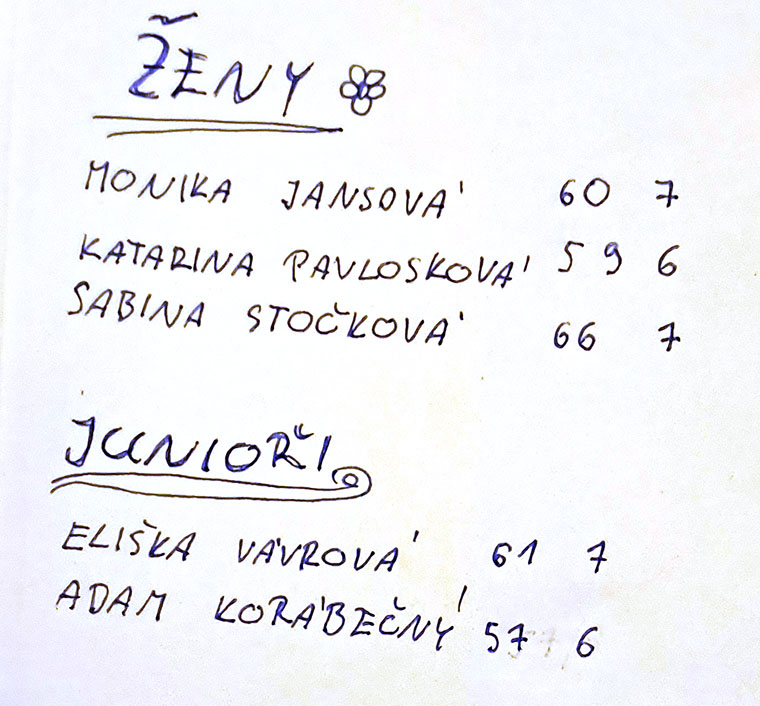 ŽENY
MONIKA JANSOVÁ 60 7
KATARINA PAVLOSKOVÁ 59 6
SABINA STOČKOVÁ 66 7
JUNIOŘI
ELIŠKA VÁVROVÁ 61 7
ADAM KORÁBEČNÝ 57 6